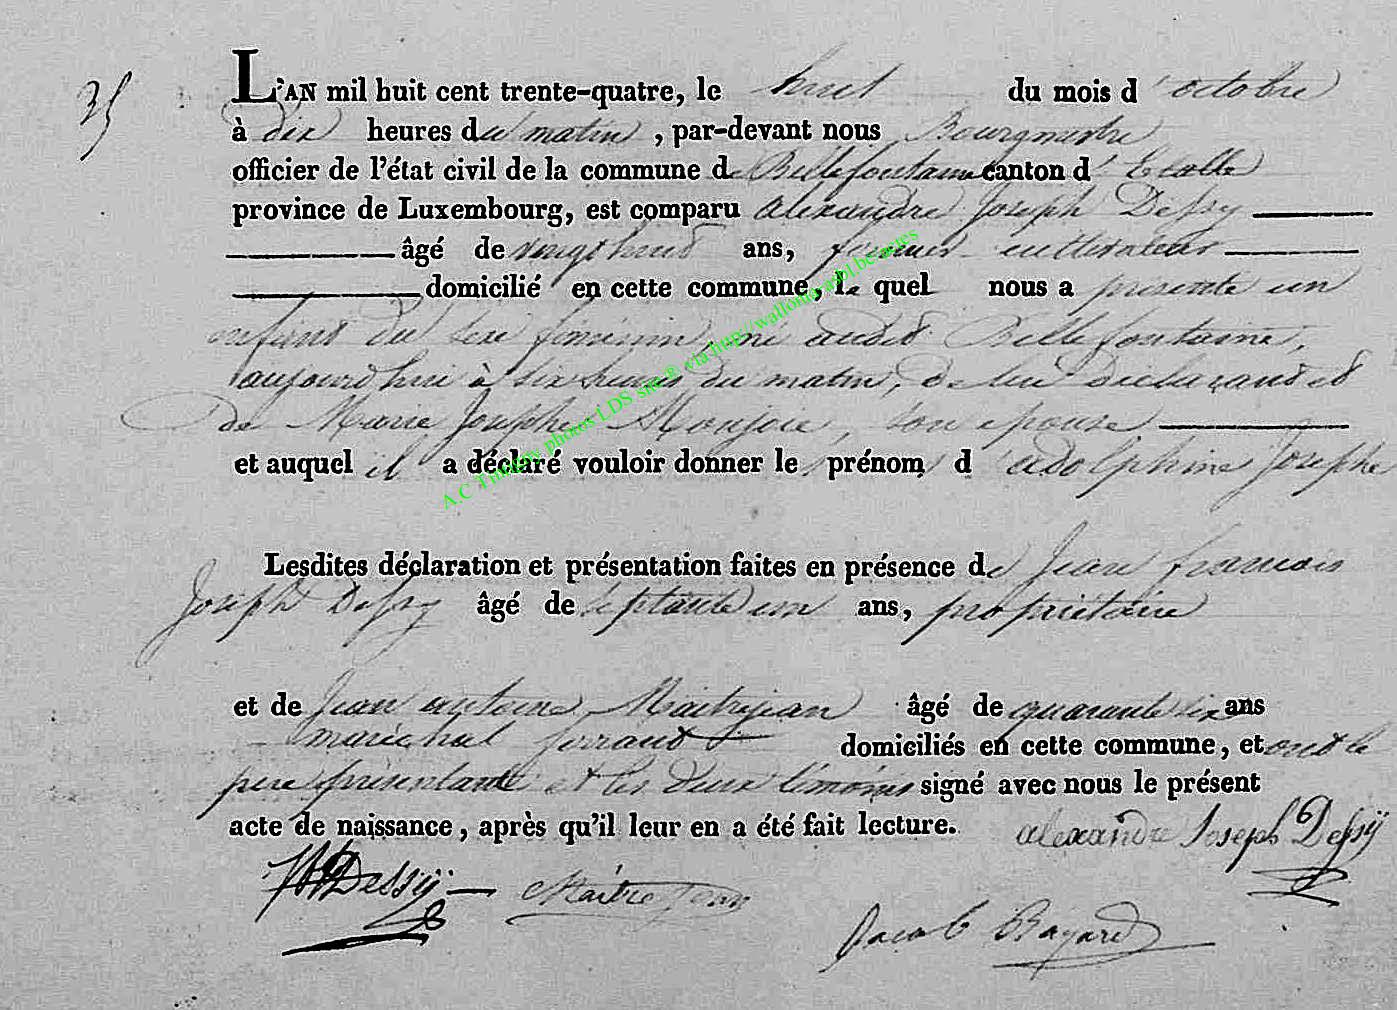 35
L'AN mil huit cent trente-quatre, le huit du mois d'octobre
à dix heures du matin, par-devant nous Bourgmestre
officier de l'état civil de la commune de Bellefontaine canton d'Etalle
province de Luxembourg, est comparu alexandre Joseph Dessy
âgé de vingt huit ans, cultivateur
domicilié en cette commune, le quel nous a présenté un
enfant du sexe féminin, né audit Bellefontaine,
aujourd'hui à six heures du matin, de lui déclarant et
de Marie Josephe Monjoie, son épouse
et auquel il a déclaré vouloir donner le prénom d'adolphine Josephe
Lesdites déclaration et présentation faites en présence de Jean francois
Joseph Dessy âgé de septante un ans, propriétaire
et de Jean antoine Maitrejean âgé de quarante six ans
maréchal ferrant domiciliés en cette commune, et ont le
pere présentant et les deux témoins signé avec nous le présent
acte de naissance, après qu'il leur en a été fait lecture.
alexandre Joseph Dessÿ
Dessÿ Maitrejean
Jacob Bayard
A.C Tintigny photos LDS site ® via http://wallonia-asbl.be/actes